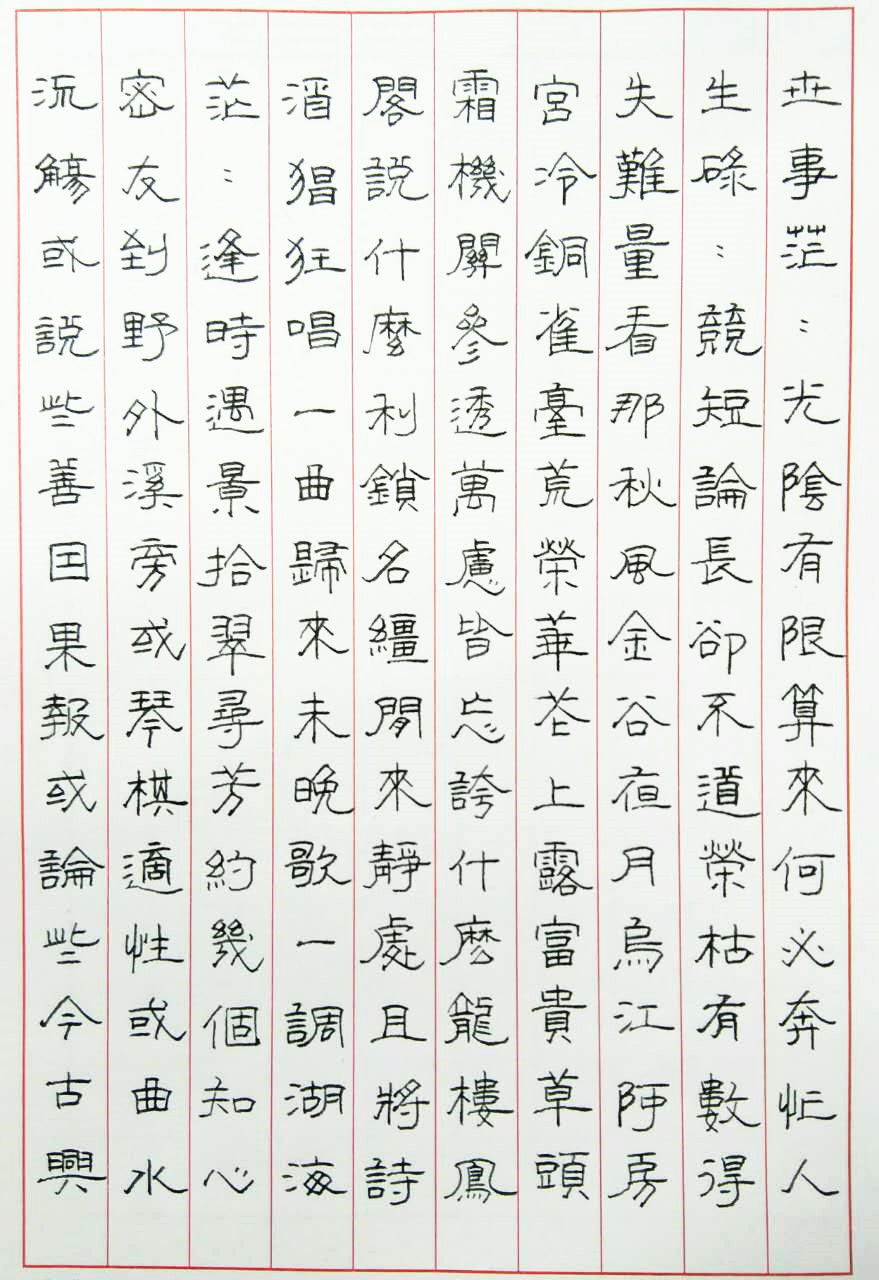 世事茫：光陰有限算來何必奔忙人
生碌：競短論長卻不道榮枯有數得
失難量看那秋風金谷夜月烏江阿房
宮冷銅雀臺荒榮華花上露富貴草頭
霜機關參透萬慮皆忘誇什麼龍樓鳳
閣說什麼利鎖名繮閒來靜處且將詩
酒猖狂唱一曲歸來未晚歌一調湖海
茫：逢時遇景拾翠尋芳約幾個知心
密友到野外溪旁或琴棋適性或曲水
流觴或說些善因果報或論些今古興